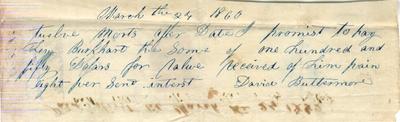 March the 24 1860
twelve Monts after Date I promist to pay
Levy Burkhart the Some of one hundred and
fifty Dolars for value Receved of him pain
Eight per Sent interst David Buttermore